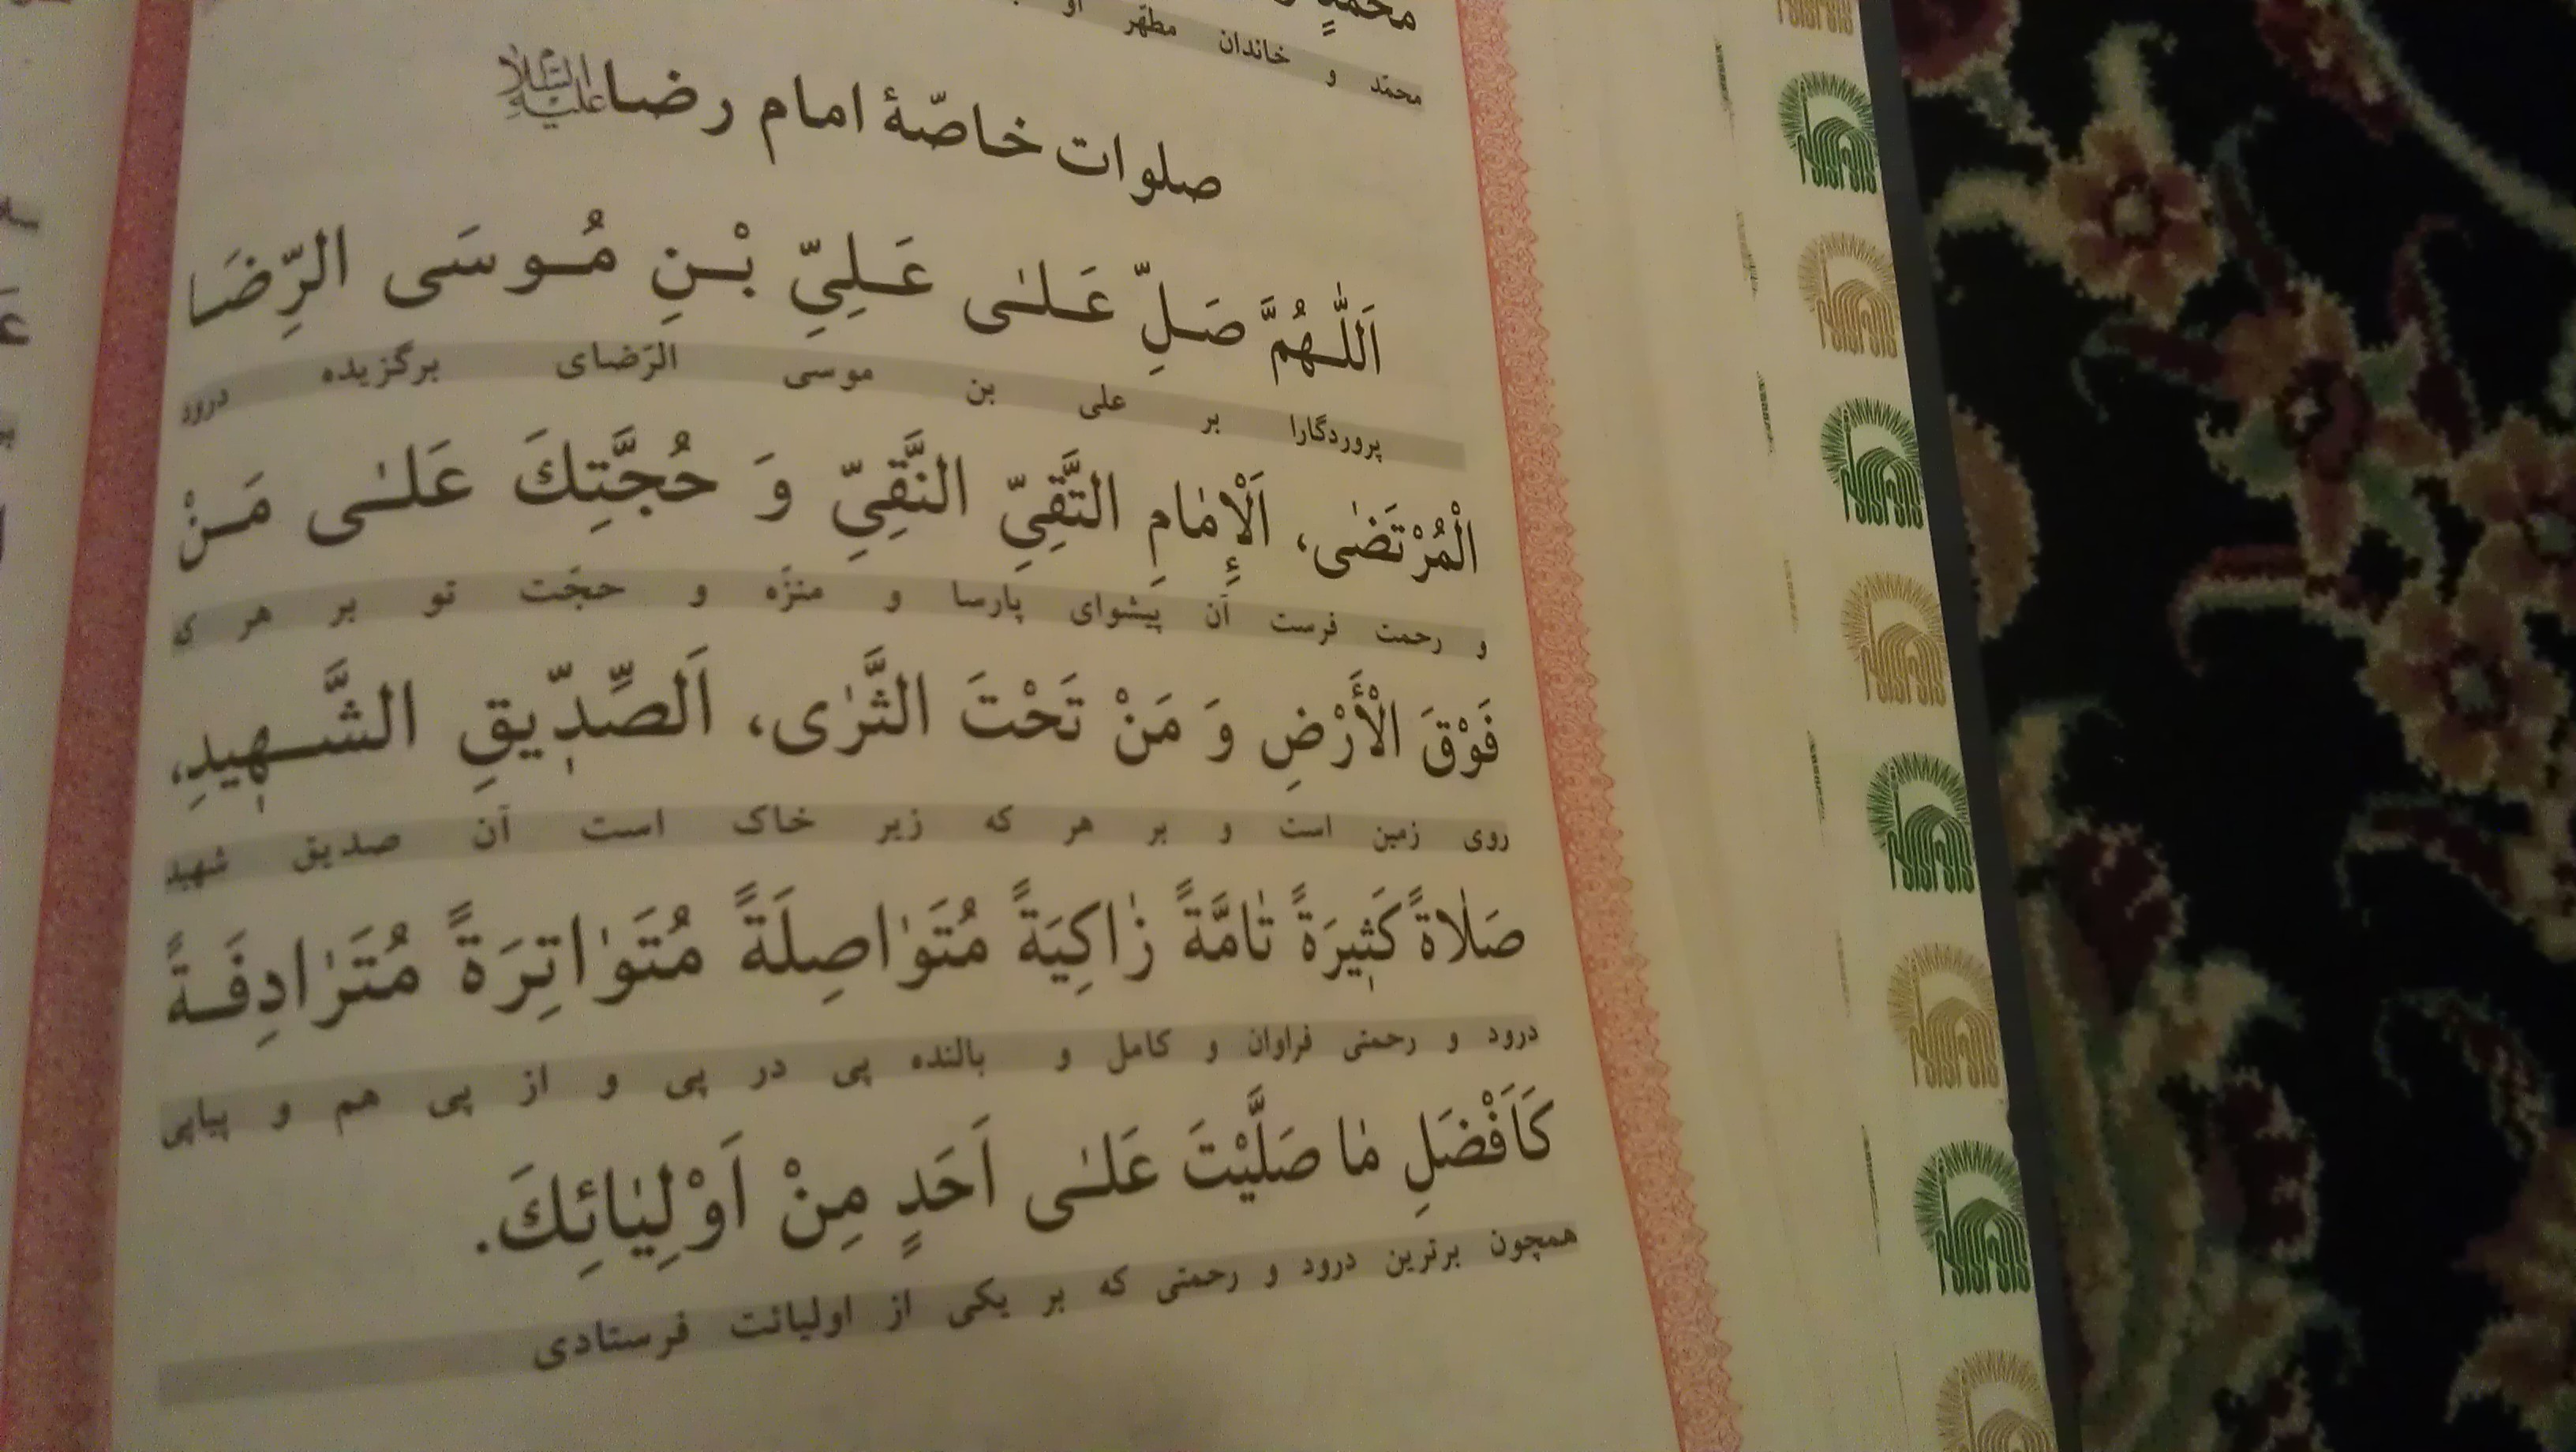 محمدٍ
محمّد و خاندان مطهّر او
صلوات خاصّهٔ امام رضا علیه السلام
اَللّٰهُمَّ صَلِّ عَلىٰ عَلِيِّ بْنِ مُوسَى الرِّضَا
پروردگارا بر علی بن موسی الرّضای برگزیده درود
الْمُرْتَضىٰ، اَلْإِمٰامِ التَّقِيِّ النَّقِيِّ وَ حُجَّتِكَ عَلىٰ مَنْ
و رحمت فرست آن پیشوای پارسا و منزّه و حجّت تو بر هر که
فَوْقَ الْأَرْضِ وَ مَنْ تَحْتَ الثَّرٰى، اَلصِّدّٖيقِ الشَّهٖيدِ،
روی زمین است و بر هر که زیر خاک است آن صدیق شهید
صَلٰاةً كَثٖيرَةً تٰامَّةً زٰاكِيَةً مُتَوٰاصِلَةً مُتَوٰاتِرَةً مُتَرٰادِفَةً
درود و رحمتی فراوان و کامل و بالنده پی در پی و از پی هم و پیاپی
كَاَفْضَلِ مٰا صَلَّيْتَ عَلىٰ اَحَدٍ مِنْ اَوْلِيٰائِكَ.
همچون برترین درود و رحمتی که بر یکی از اولیائت فرستادی